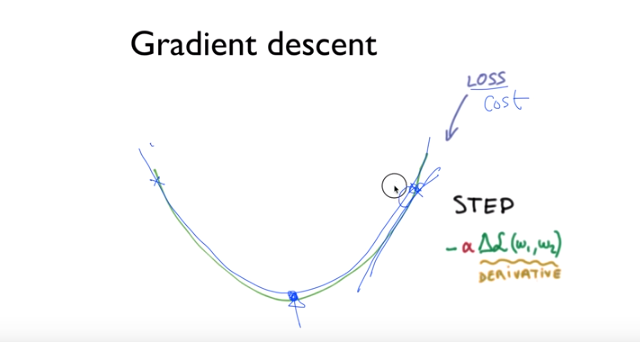 Gradient descent
LOSS
Cost
STEP
-α ΔL(w₁,w₂)
DERIVATIVE